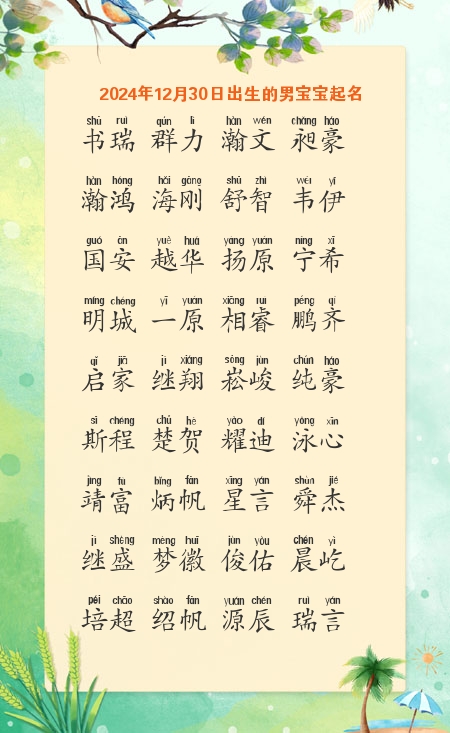 2024年12月30日出生的男宝宝起名
shū ruì qún lì hàn wén chǎng háo
书瑞 群力 瀚文 昶豪
hàn hóng hǎi gāng shū zhì wéi yī
瀚鸿 海刚 舒智 韦伊
guó ān yuè huá yáng yuán níng xī
国安 越华 扬原 宁希
míng chéng yī yuán xiāng ruì péng qí
明城 一原 相睿 鹏齐
qǐ jiā jì xiáng sōng jùn chún háo
启家 继翔 崧峻 纯豪
sī chéng chǔ hè yào dí yǒng xīn
斯程 楚贺 耀迪 泳心
jìng fù bǐng fān xīng yán shùn jié
靖富 炳帆 星言 舜杰
jì shèng mèng huī jùn yòu chén yì
继盛 梦徽 俊佑 晨屹
péi chāo shào fān yuán chén ruì yán
培超 绍帆 源辰 瑞言